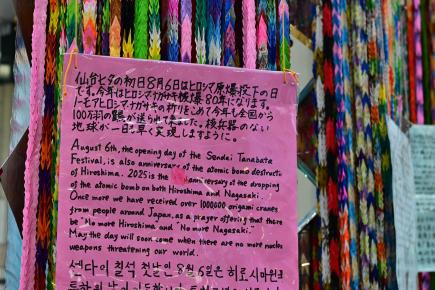 仙台七夕の初日8月6日はヒロシマ原爆投下の日
です。今年はヒロシマナガサキ被爆80年になります。
ノーモアヒロシマナガサキの祈りをこめて今年も全国から
100万羽の鶴が送られて来ました。核兵器のない
地球が一日も早く実現しますように。
August 6th, the opening day of the Sendai Tanabata
Festival, is also anniversary of the atomic bomb destructi
of Hiroshima. 2025 is the anniversary of the dropping
of the atomic bomb on both Hiroshima and Nagasaki.
Once more we have received over 1000000 origami cranes
from people around Japan, as a prayer offering that there
be "No more Hiroshima" and "No more Nagasaki."
May the day will soon come when there are no more nuclea
weapons threatening our world.
센다이 칠석 첫날인 8월 6일은 히로시마 원폭